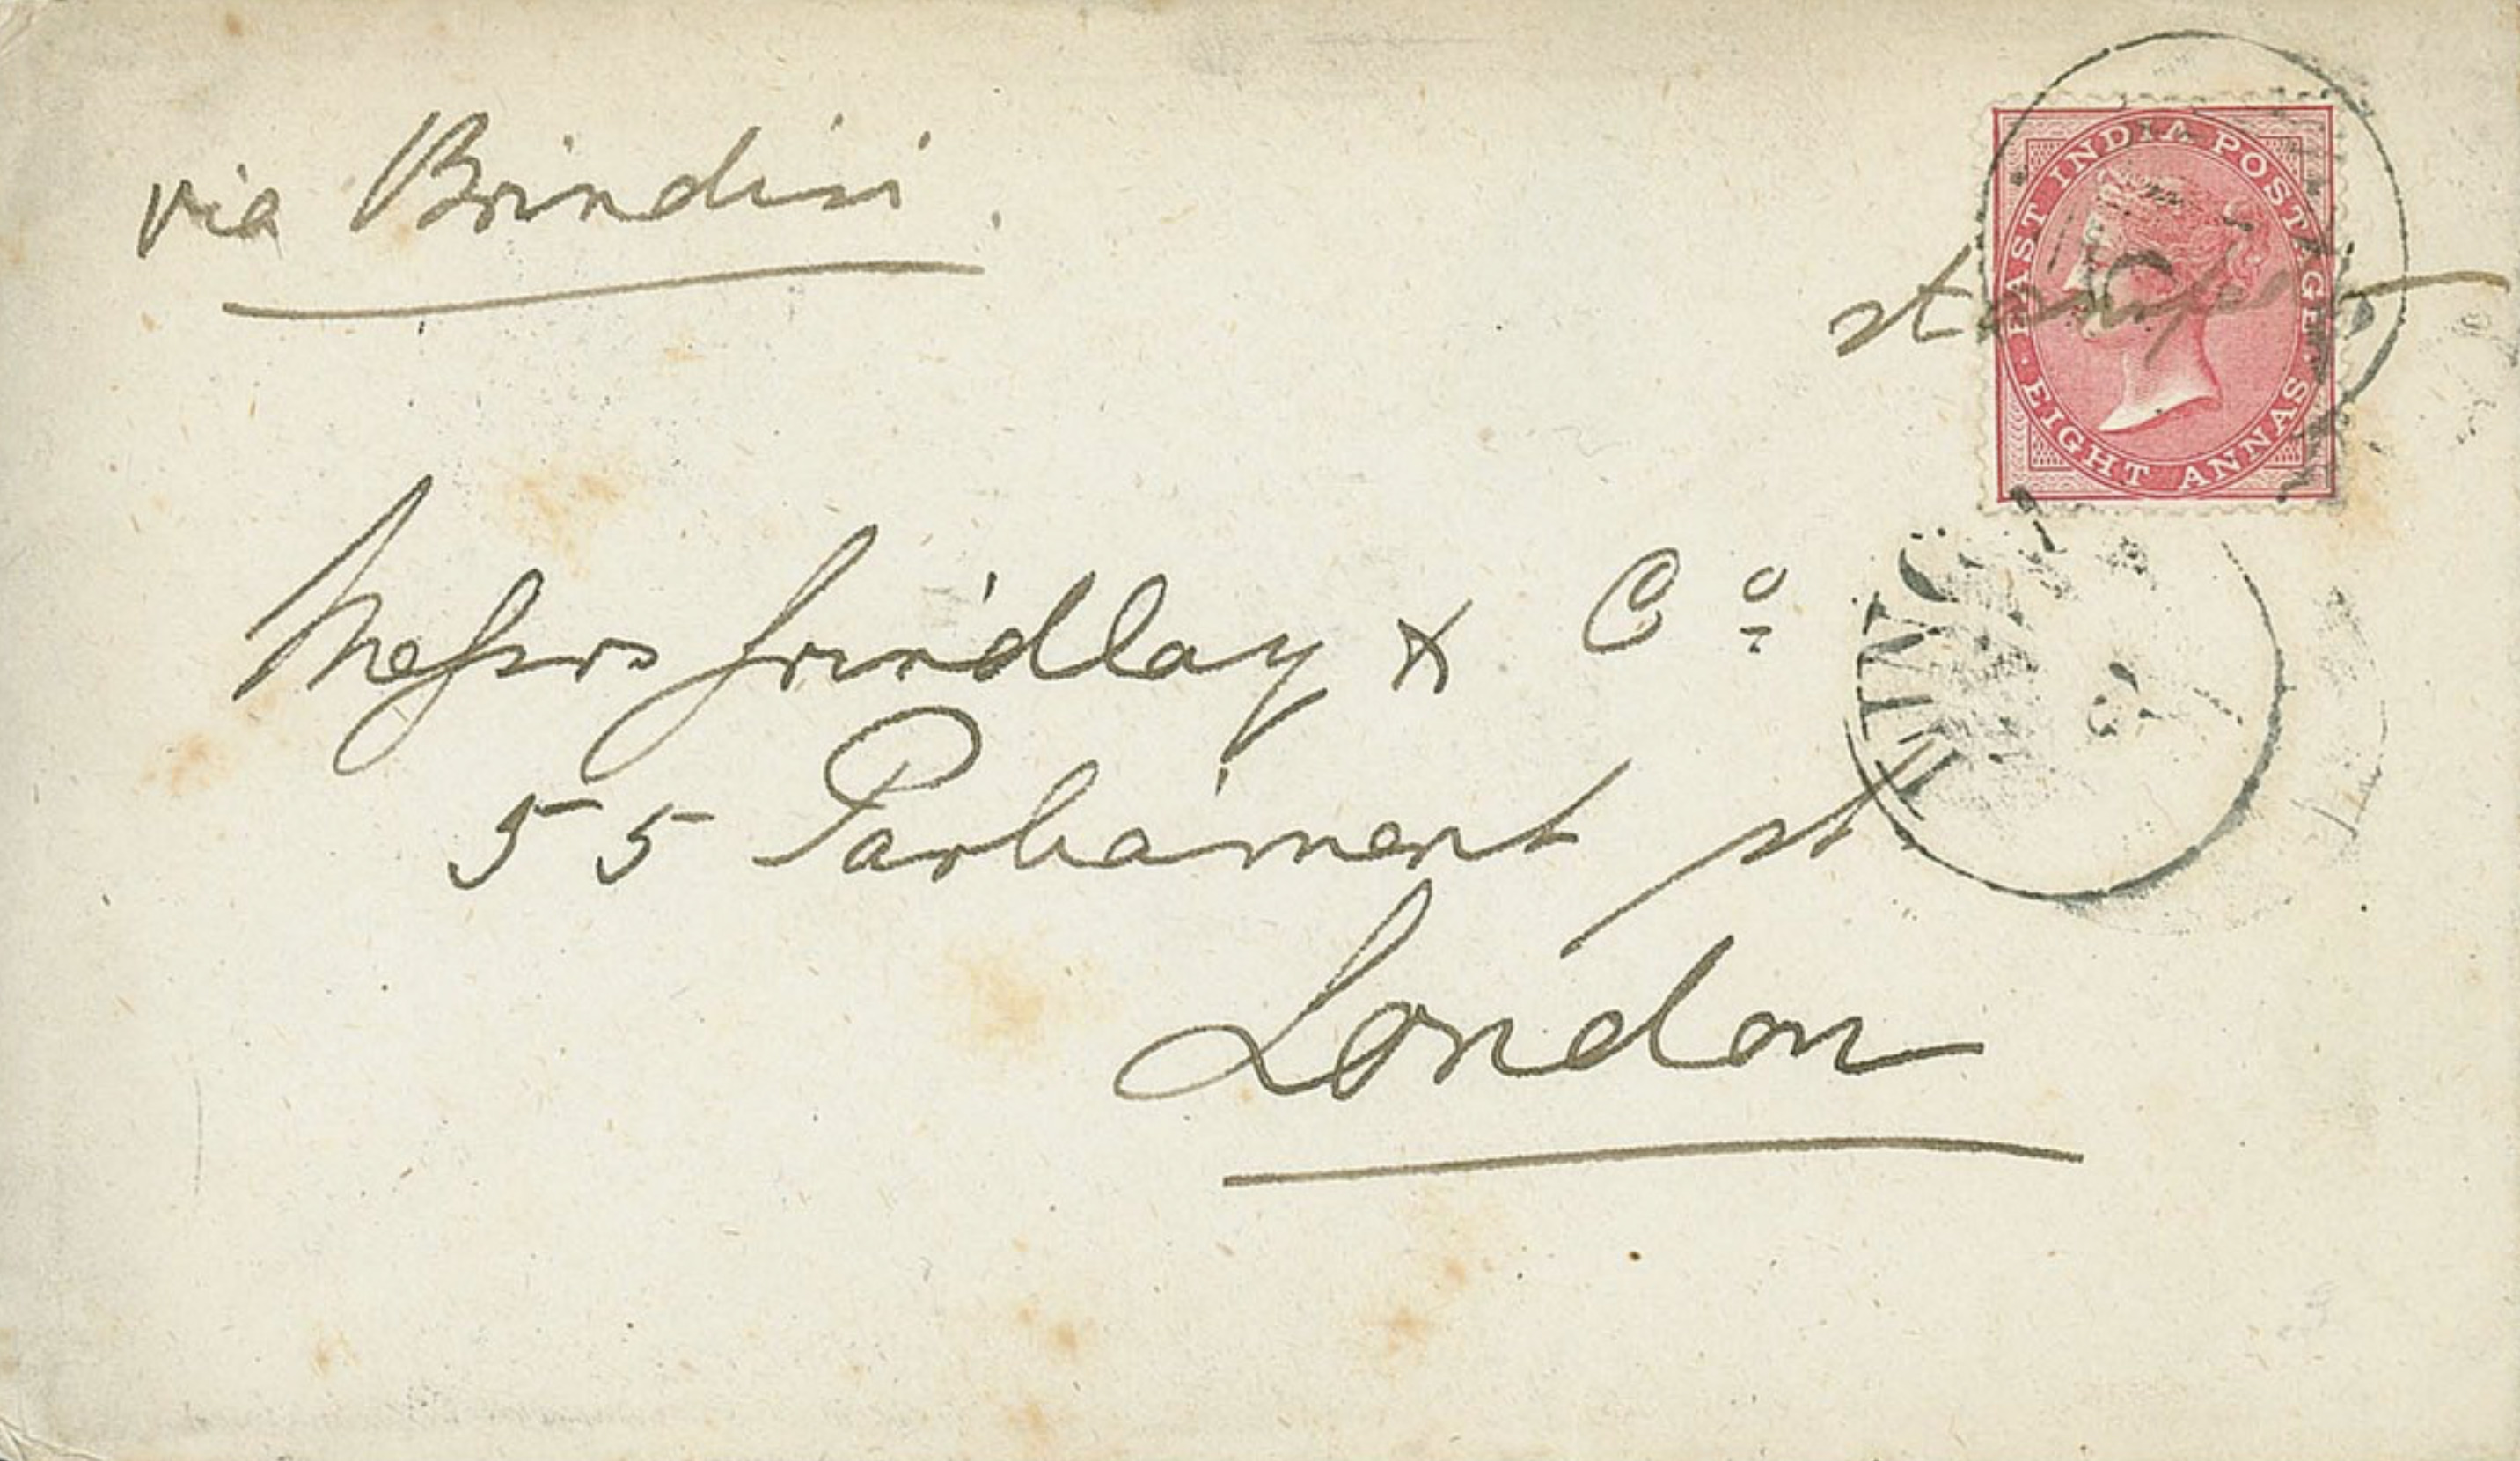 via Brindisi.
EAST INDIA POSTAGE.
stamped
EIGHT ANNAS
Messrs Grindlay & Co
55 Parliament St
London